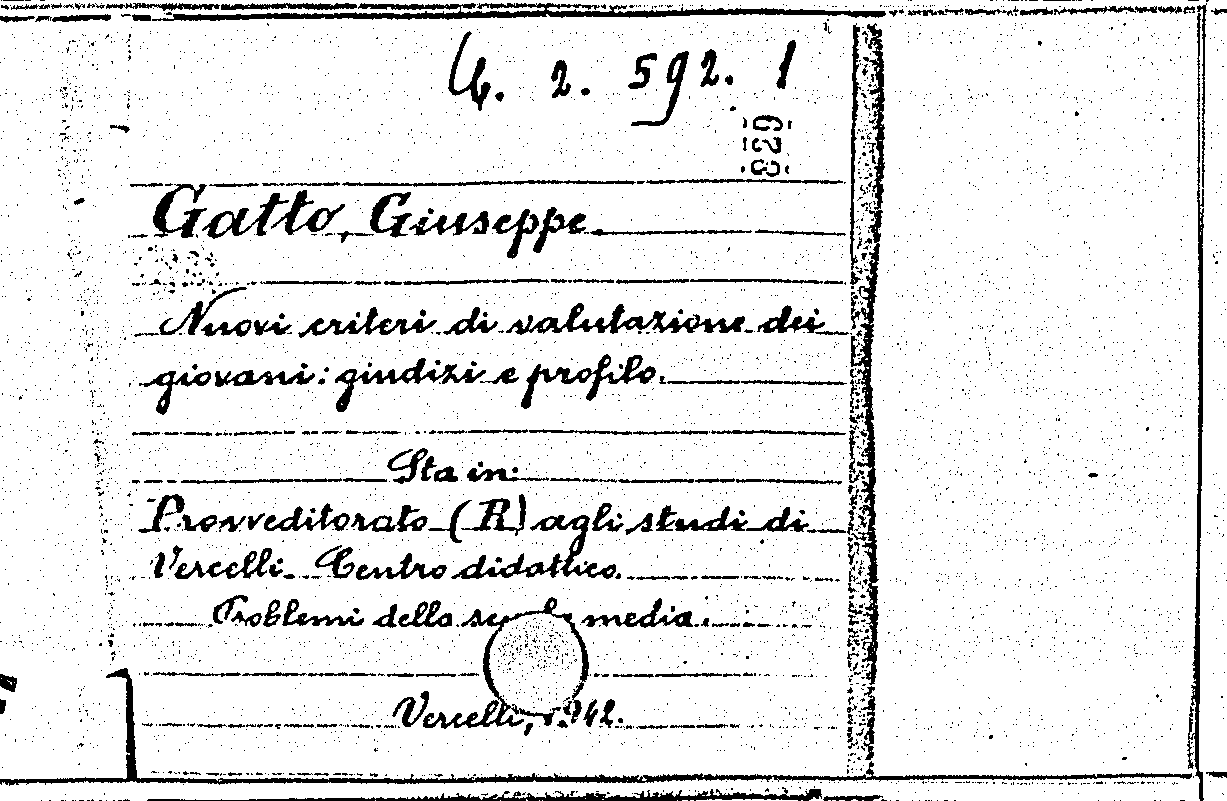 U. 2. 592. 1
829
Gatto, Giuseppe.
Nuovi criteri di valutazione dei
giovani: giudizi e profilo.
Sta in:
Provveditorato (R) agli studi di
Vercelli. Centro didattico.
Problemi della scuola media.
Vercelli, 1942.